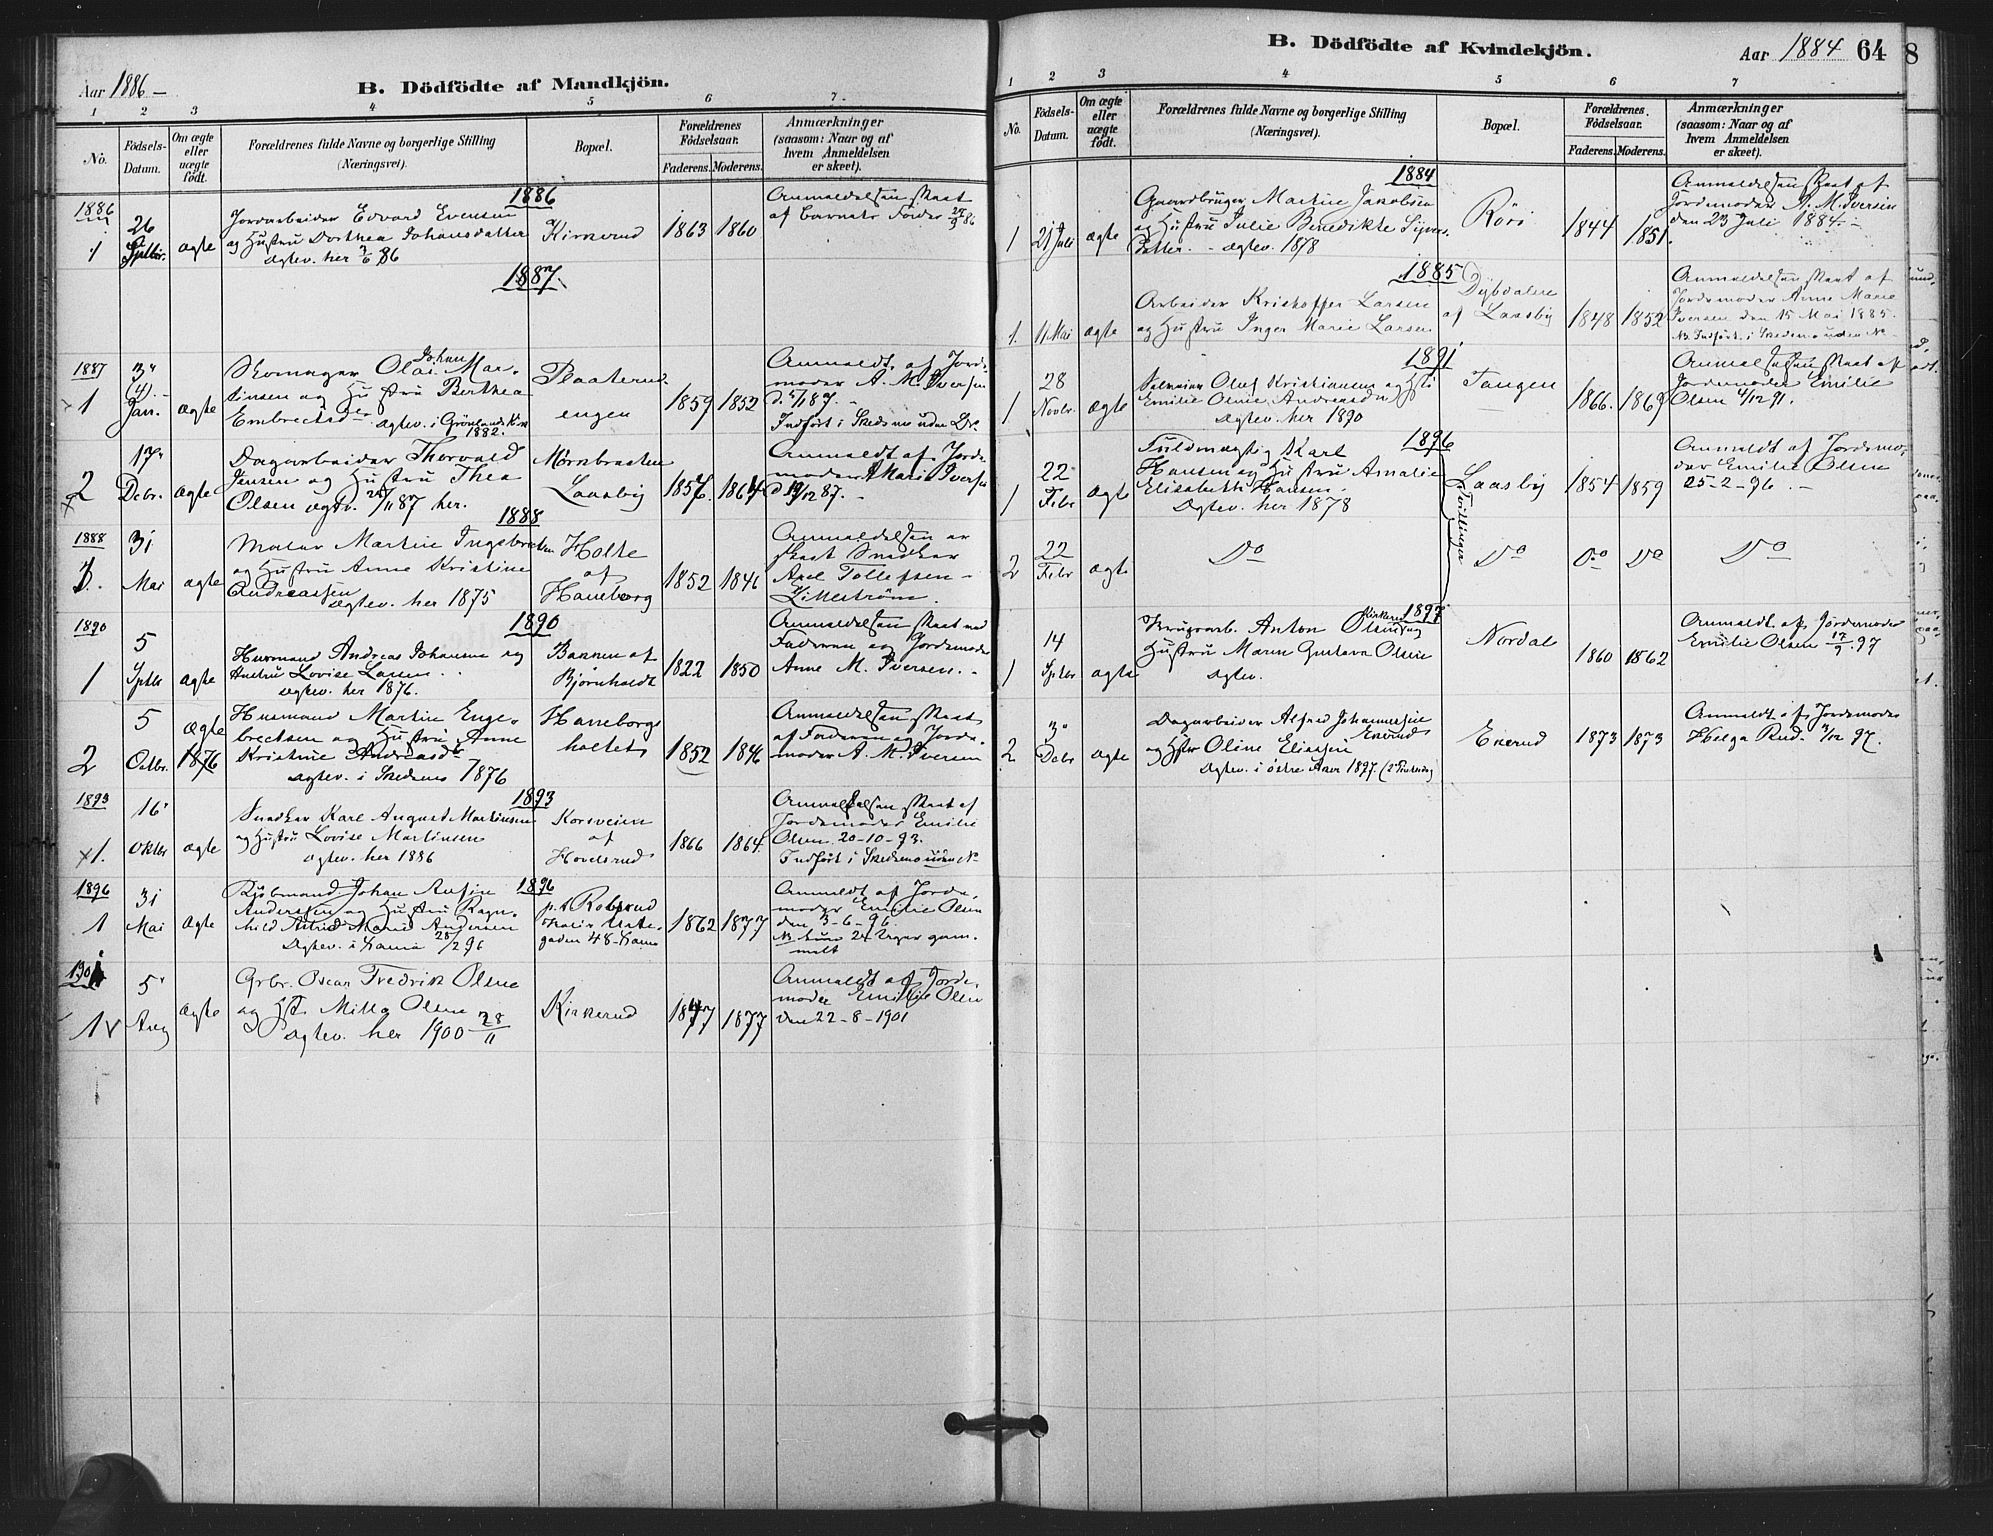 Aar 1886 –
B. Dödfödte af Mandkjön.
1 2 3 4 5 6 7.
No.
Födsels-
Datum.
Om ægte
eller
uægte
födt.
Forældrenes fulde Navne og borgerlige Stilling
(Næringsvei).
Bopæl.
Forældrenes
Födselsaar.
Faderens. Moderens.
Anmærkninger
(saasom: Naar og af
hvem Anmeldelsen
er skeet).
1886
1886
1
26
Septbr.
ægte
Jordarbeider Edvard Evensen
og Hustru Dorthea Johansdatter
ægtev. her 86
Kirkerud
1863
1860
Anmeldelsen skeet
af barnets Fader 86
1887
1887
1
3
(4)
Jan.
ægte
Skomager Olai Johan Mar-
tinsen og Hustru Berthea
Embretsd. ægtev. i Grönlands K
1882.
engen
1859
1852
Anmeldt af Jord-
moder A. M. Iversen
Indfört i Skedsmo uden No
2
17
Debr.
ægte
Dagarbeider Thorvald
Jensen og Hustru Thea
Olsen ægtv. 87 her.
Laasby
1857.
1864
Anmeldt af Jorde-
moder A Marie Iversen
12 87. –
1888
1888
1.
31
Mai
ægte
Maler Martin Ingebretsen
og Hustru Anne Kristine
Andreassen
ægtev. her 1875
Holte
af
Haneborg
1852
1846
Anmeldelsen er
skeet Snedker
Axel Tollefsen –
Lilleström.
1890
1890
1
5
Septbr
ægte
Husmand Andreas Johansen og
Hustru Lovise Larsen
ægtev. her 1876.
Bakken af
Bjørnholdt
1822
1850
Anmeldelsen skeet ved
Faderen og Jordemoder
Anne M. Iversen. –
2
5
Octbr.
ægte
1876
Husmand Martin Enge-
bretsen og Hustru Anne
Kristine Andreasd
ægtev. i Skedsmo 1876
Haneborg-
holtet
1852
1846
Anmeldelsen skeet
af Faderen og Jorde-
moder A. M. Iversen
1893
1893
1.
16
Oktbr
ægte
Snedker Karl August Martinsen
og Hustru Lovise Martinsen
ægtev. her 1886
Korsveien
af
Hovelsrud
1866
1864
Anmeldelsen skeet af
Jordemoder Emilie
Olsen 20–10–93.
Indfört i Skedsmo uden No
1896
1896
1
31
Mai
ægte
Kjöbmand Johan Anton
Andersen og Hustru Ragn-
hild Astrid Marie Andersen
ægtev. i Xania 28/2 96
p.t Robsrud
gaden 48 Xania
1862
1877
Anmeldt af Jorde-
moder Emilie Olsen
den 3–6–96
NB kun 24 Uger gam-
melt
1901
1
5
Aug
ægte
Grbr. Oscar Fredrik Olsen
og Hst. Milla Olsen
ægtev. her 1900 28/11
Kirkerud
1877
1877
Anmeldt af Jorde-
moder Emilie Olsen
den 22–8–1901
B. Dödfödte af Kvindekjön.
Aar 1884
64
8
1 2 3 4 5 6 7
No.
Födsels-
Datum.
Om ægte
eller
uægte
födt.
Forældrenes fulde Navne og borgerlige Stilling
(Næringsvei).
Bopæl.
Forældrenes
Födselsaar.
Faderens. Moderens.
Anmærkninger
(saasom: Naar og af
hvem Anmeldelsen
er skeet).
1884
1
21 Juli
ægte
Gaardbruger Martin Jakobsen
og Hustru Julie Benedikte Siger
datter. – ægtev. 1878
1844
1851.
Anmeldelsen skeet af
Jordmoder A. M. Iversen
den 23 Juli 1884. –
1885
1.
11 Mai
ægte
Arbeider Kristoffer Larsen
og Hustru Inger Marie Larsen
Dybdalen
af Laasby
1848
1852
Anmeldelsen skeet af
Jordemoder Anne Marie
Iversen den 15 Mai 1885.
NB Indfört i Skedsmo uden No
1891
1
28
Novbr.
ægte
Oluf Kristiansen og Hst
Emilie Oline Andreasdtr
ægtev. her 1890
Tangen
1866.
1869
Anmeldelsen skeet af
Jordemoder Emilie
Olsen 4/12 91.
1896
1
22
Febr
ægte
Fuldmægtig Karl
Hansen og Hustru Amalie
Elisabeth Hansen.
ægtev. her 1878
Tvillinger
Laasby
1854
1859
Anmeldt af Jordemo-
der Emilie Olsen
25–2–96. –
2
22
Febr
ægte
Do
Do
Do
Do
Do
1897
1
14
Septbr
ægte
Anton Olsen og
Hustru Maren Gustava Olsen
ægtev.
Nordal
1860
1862
Anmeldt af Jordemoder
Emilie Olsen 17/9 97
2
3
Debr
ægte
Dagarbeider Alfred Johannesen
Ekerud
og Hstr Oline Eliassen
ægtev. i östre Aker 1897.
Ekerud
1873
1873
Anmeldt af Jordemoder
Helga Rud. 3/12 97.